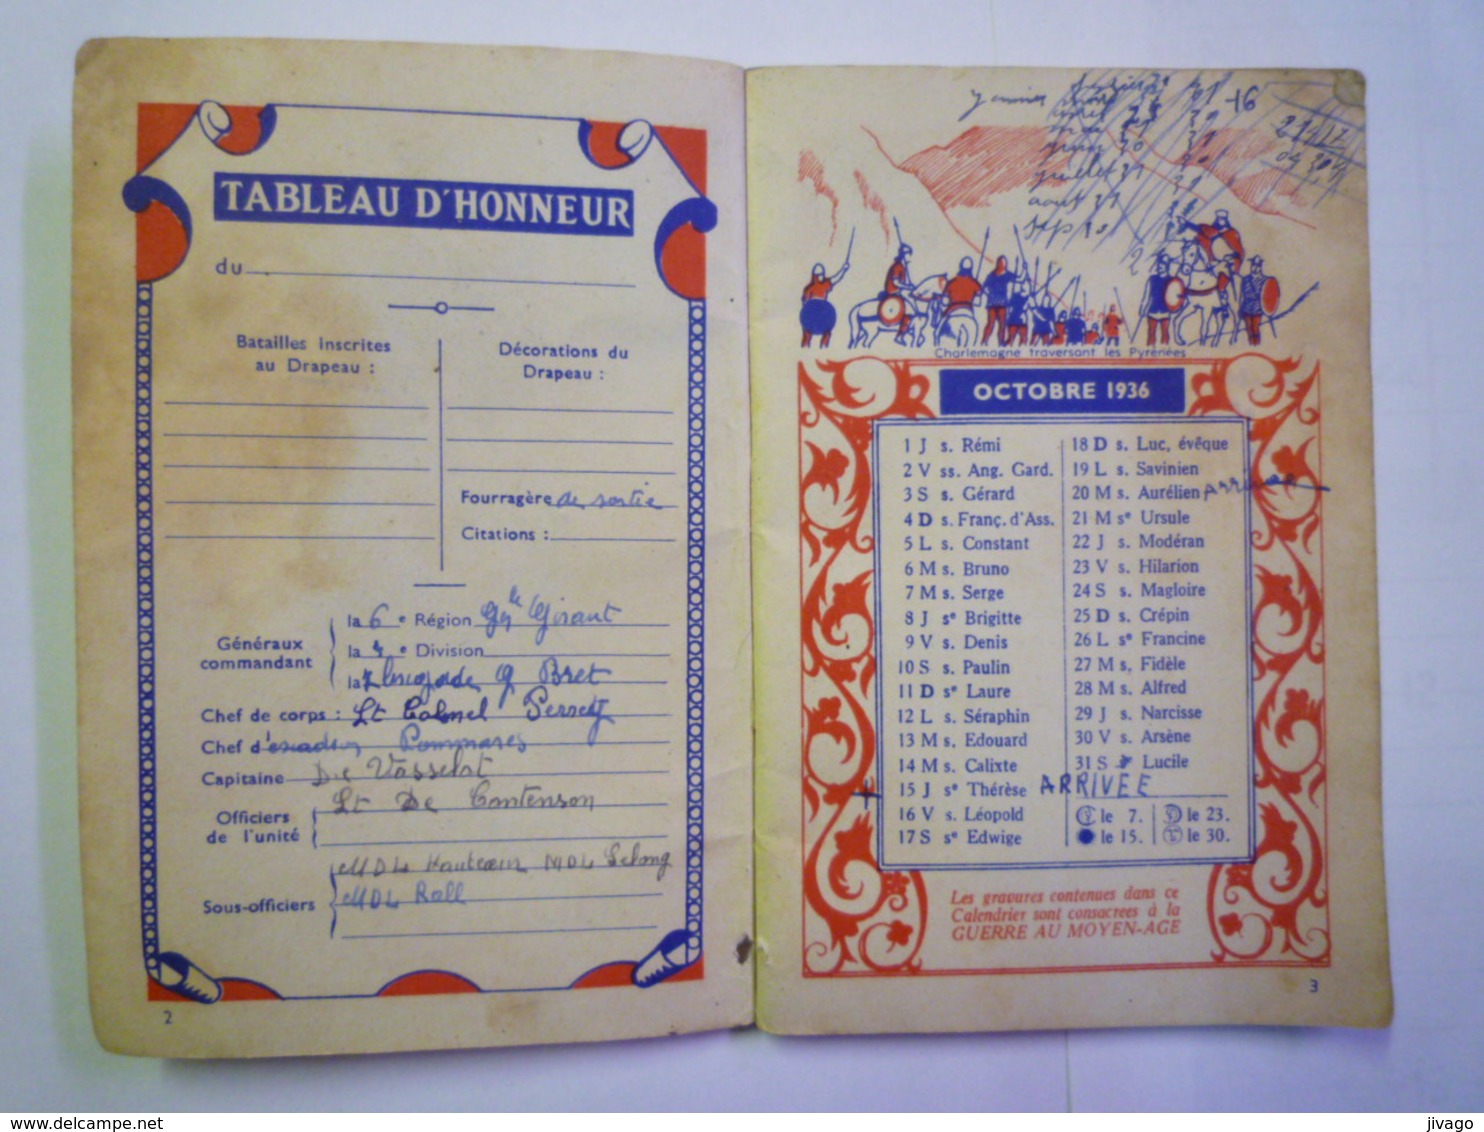 TABLEAU D'HONNEUR
du
Batailles inscrites
au Drapeau :
Décorations du
Drapeau :
Fourragère de sortie
Citations :
Généraux
commandant
la 6e Région Gal Girant
la 4e Division
la 2 Brigade G Bret
Chef de corps : Lt Colonel
Chef d'escadron Pommarès
Capitaine De Vasselot
Officiers
de l'unité
Lt De Contenson
Sous-officiers
MDL Hautcœur MDL Lelong
MDL Roll
2
Janvier 31
30
juillet 31
août 31
sep 30
16
Charlemagne traversant les Pyrénées
OCTOBRE 1936
1 J s. Rémi
2 V ss. Ang. Gard.
3 S s. Gérard
4 D s. Franç. d'Ass.
5 L s. Constant
6 M s. Bruno
7 M s. Serge
8 J se Brigitte
9 V s. Denis
10 S s. Paulin
11 D se Laure
12 L s. Séraphin
13 M s. Edouard
14 M s. Calixte
+ 15 J se Thérèse ARRIVEE
16 V s. Léopold
17 S se Edwige
18 D s. Luc, évêque
19 L s. Savinien
20 M s. Aurélien
21 M se Ursule
22 J s. Modéran
23 V s. Hilarion
24 S s. Magloire
25 D s. Crépin
26 L se Francine
27 M s. Fidèle
28 M s. Alfred
29 J s. Narcisse
30 V s. Arsène
31 S se Lucile
le 7. le 23.
le 15. le 30.
Les gravures contenues dans ce
Calendrier sont consacrees à la
GUERRE AU MOYEN-AGE
3
delcampe.net
jivago